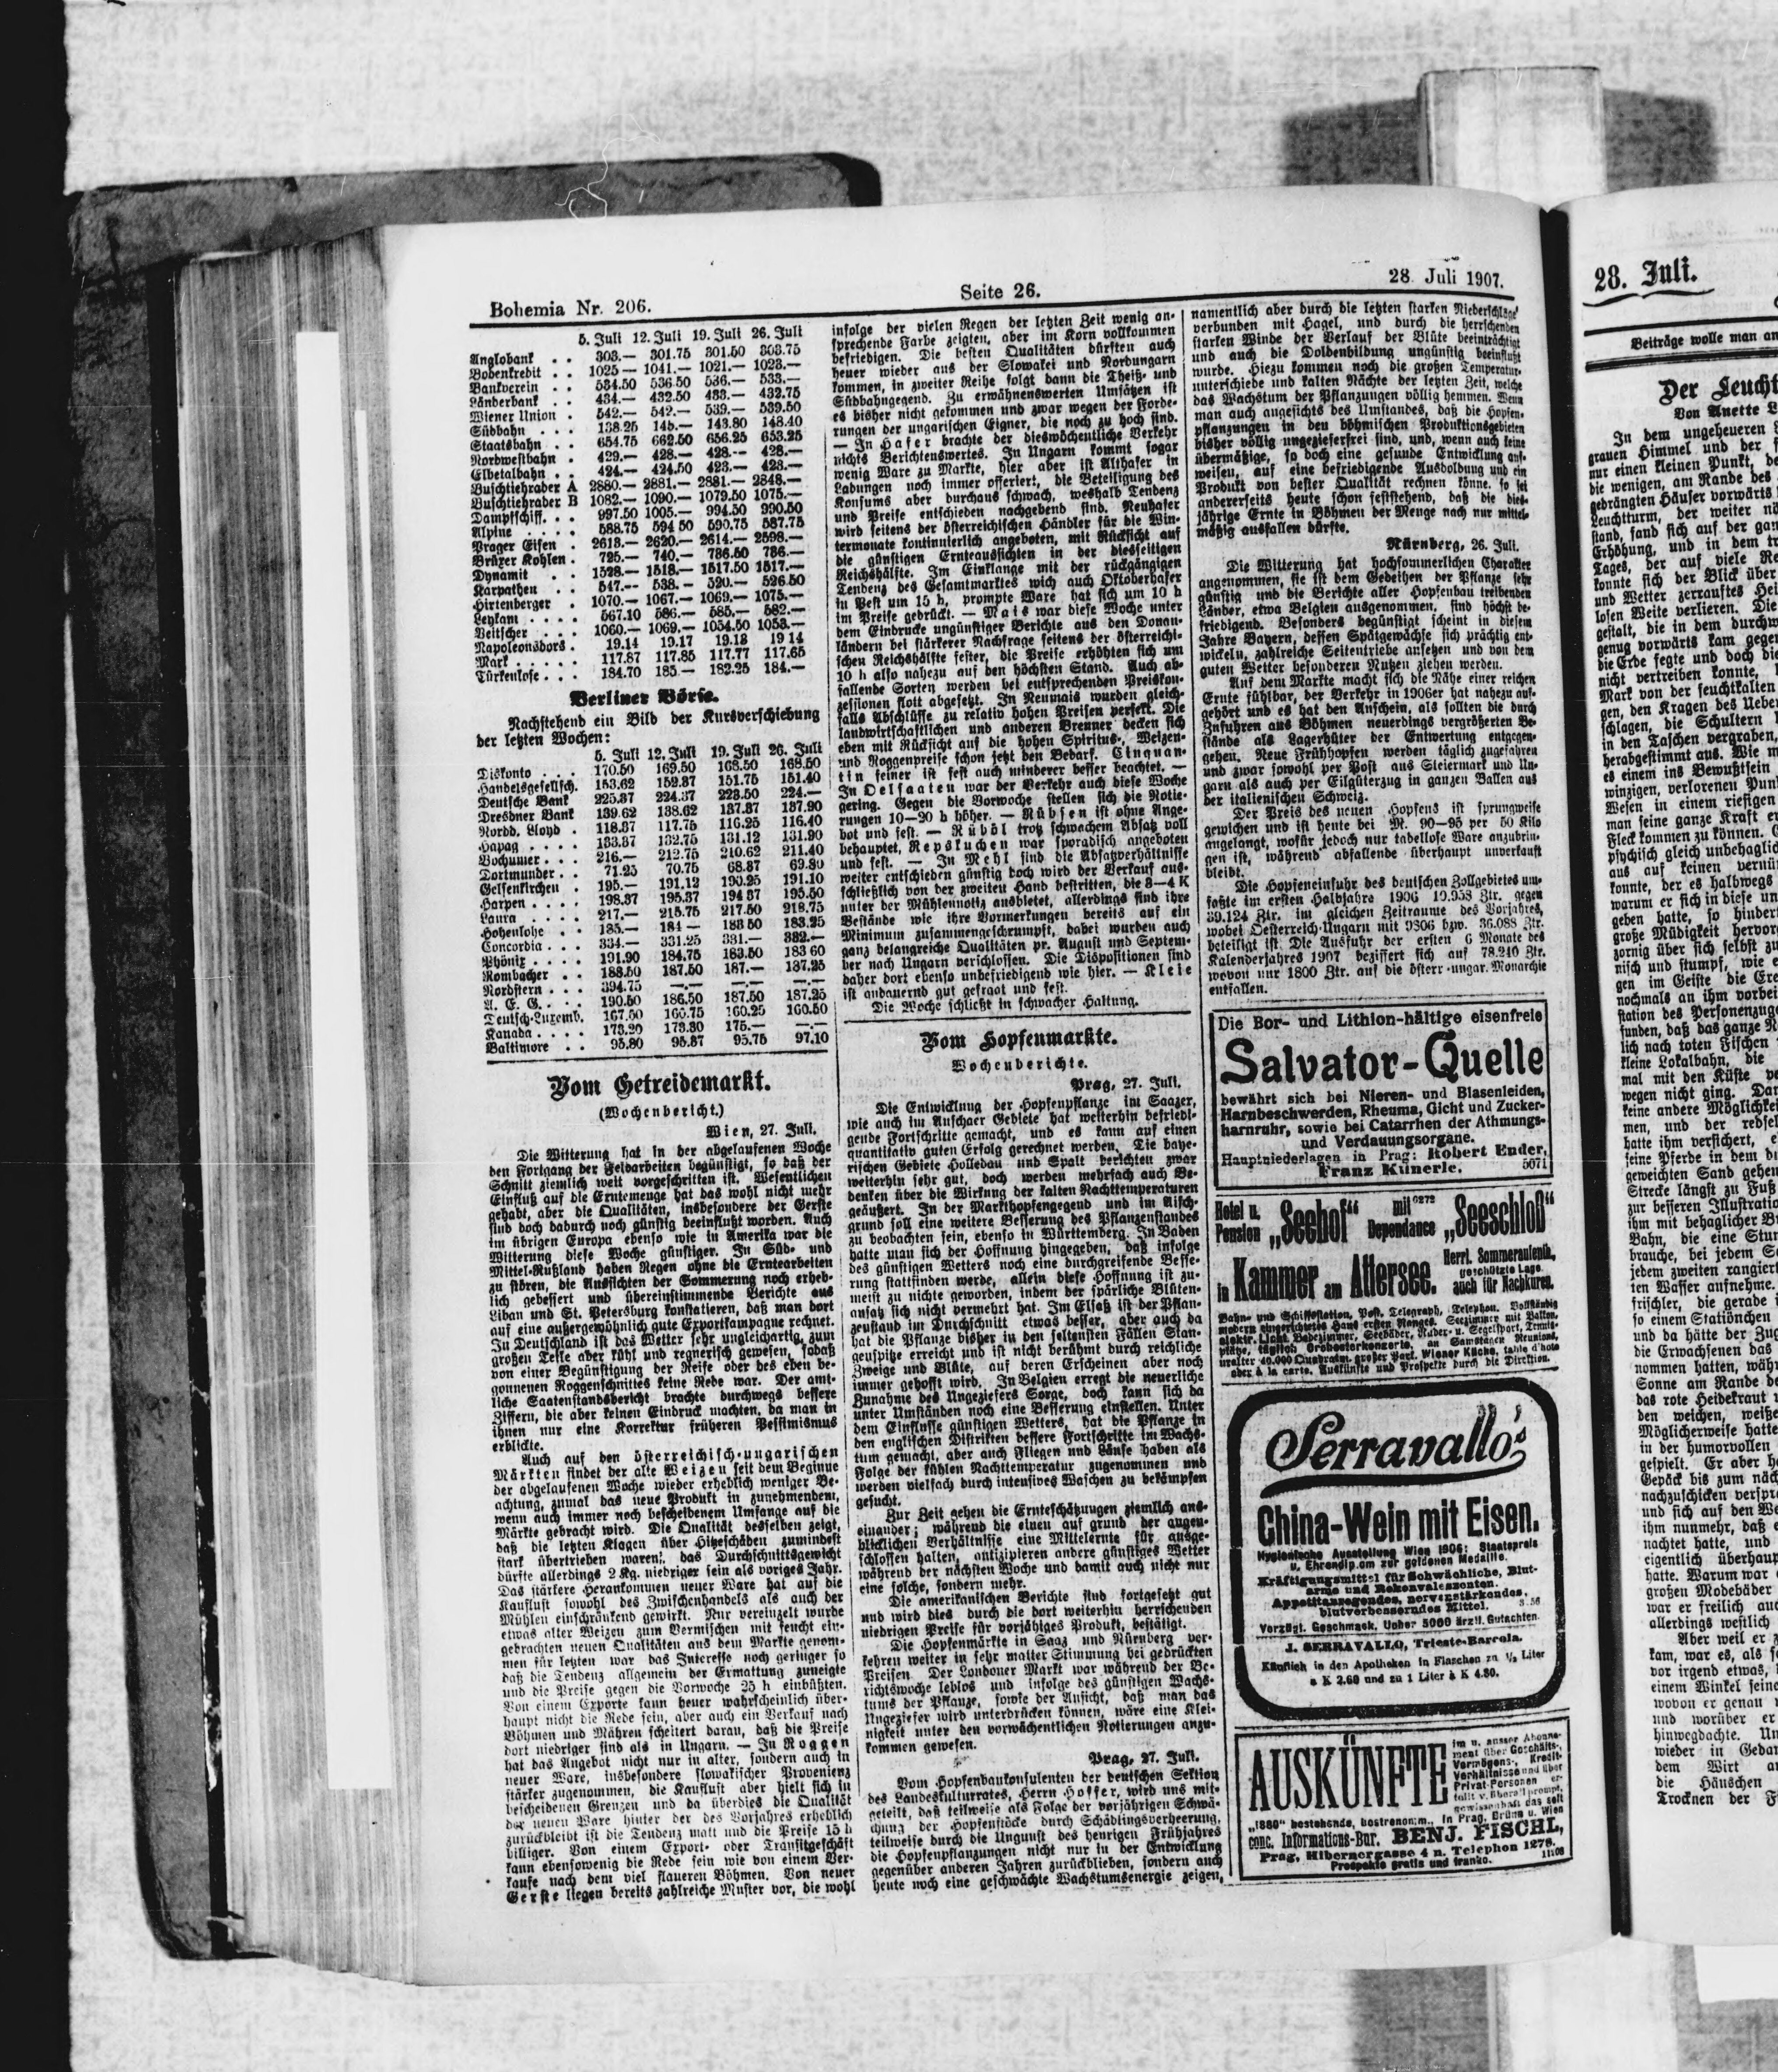 Bohemia Nr. 206.
Seite 26.
28. Juli 1907.
5. Juli 12. Juli 19. Juli 26. Juli
Anglobank . . 303.— 301.75 301.50 303.75
Bodenkredit . . 1025 — 1041.— 1021.— 1023.—
Bankverein . . 534.50 536.50 536.— 533.—
Länderbank . . 434.— 432.50 433.— 432.75
Wiener Union . 542.— 542.— 539.— 539.50
Südbahn . . . 138.25 145.— 143.80 148.40
Staatsbahn . . 654.75 662.50 656.25 653.25
Nordwestbahn . 429.— 428.— 428.— 428.—
Elbetalbahn . . 424.— 424.50 423.— 423.—
Buschtiehrader A 2880.— 2881.— 2881.— 2848.—
Buschtiehrader B 1082.— 1090.— 1079.50 1075.—
Dampfschiff. . . 997.50 1005.— 994.50 990.50
Alpine . . . . 588.75 594 50 590.75 587.75
Prager Eisen . 2613.— 2620.— 2614.— 2598.—
Brüxer Kohlen . 725.— 740.— 786.50 786.—
Dynamit . . 1528.— 1518.— 1517.50 1517.—
Karpathen . . 547.— 538.— 520.— 526.50
Hirtenberger . 1070.— 1067.— 1069.— 1075.—
Leykam . . . . 567.10 586.— 585.— 582.—
Veitscher . . . 1060.— 1069.— 1054.50 1053.—
Napoleonsdors . 19.14 19.17 19.18 19 14
Mark . . . . . 117.87 117.85 117.77 117.65
Türkenlose . . . 184.70 185.— 182.25 184.—
Berliner Börse.
Nachstehend ein Bild der Kursverschiebung
der letzten Wochen:
5. Juli 12. Juli 19. Juli 26. Juli
Diskonto . . . 170.50 169.50 168.50 168.50
Handelsgesellsch. 153.62 152.87 151.75 151.40
Deutsche Bank 225.37 224.37 223.50 224.—
Dresdner Bank 139.62 138.62 137.87 137.90
Nordd. Lloyd . 118.37 117.75 116.25 116.40
Hapag . . . . 133.37 132.75 131.12 131.90
Bochumer . . . 216.— 212.75 210.62 211.40
Dortmunder . . 71.25 70.75 68.87 69.80
Gelsenkirchen . 195.— 191.12 190.25 191.10
Harpen . . . . 198.37 195.37 194 37 195.50
Laura . . . . 217.— 215.75 217.50 218.75
Hohenlohe . . 185.— 184 — 183 50 183.25
Concordia . . . 334.— 331.25 331.— 332.—
Phönix . . . . 191.90 184.75 183.50 183 60
Rombacher . . 188.50 187.50 187.— 187.25
Nordstern . . . 394.75 —.— —.— —.—
A. E. G. . . . 190.50 186.50 187.50 187.25
Deutsch-Luxemb. 167.50 160.75 160.25 160.50
Kanada . . . . 173.20 173.30 175.— —.—
Baltimore . . 95.80 95.87 95.75 97.10
Vom Getreidemarkt.
(Wochenbericht.)
Wien, 27. Juli.
Die Witterung hat in der abgelaufenen Woche
den Fortgang der Feldarbeiten begünstigt, so daß der
Schnitt ziemlich weit vorgeschritten ist. Wesentlichen
Einfluß auf die Erntemenge hat das wohl nicht mehr
gehabt, aber die Qualitäten, insbesondere der Gerste
sind doch dadurch noch günstig beeinflußt worden. Auch
im übrigen Europa ebenso wie in Amerika war die
Witterung diese Woche günstiger. In Süd- und
Mittel-Rußland haben Regen ohne die Erntearbeiten
zu stören, die Aussichten der Sommerung noch erheb-
lich gebessert und übereinstimmende Berichte aus
Liban und St. Petersburg konstatieren, daß man dort
auf eine außergewöhnlich gute Exportkampagne rechnet.
In Deutschland ist das Wetter sehr ungleichartig, zum
großen Teile aber kühl und regnerisch gewesen, sodaß
von einer Begünstigung der Reife oder des eben be-
gonnenen Roggenschnittes keine Rede war. Der amt-
liche Saatenstandsbericht brachte durchwegs bessere
Ziffern, die aber keinen Eindruck machten, da man in
ihnen nur eine Korrektur früheren Pessimismus
erblickte.
Auch auf den österreichisch-ungarischen
Märkten findet der alte Weizen seit dem Beginne
der abgelaufenen Woche wieder erheblich weniger Be-
achtung, zumal das neue Produkt in zunehmendem,
wenn auch immer noch bescheidenem Umfange auf die
Märkte gebracht wird. Die Qualität desselben zeigt,
daß die letzten Klagen über Hitzeschäden zumindest
stark übertrieben waren; das Durchschnittsgewicht
dürfte allerdings 2 Kg. niedriger sein als voriges Jahr.
Das stärkere Herankommen neuer Ware hat auf die
Kauflust sowohl des Zwischenhandels als auch der
Mühlen einschränkend gewirkt. Nur vereinzelt wurde
etwas alter Weizen zum Vermischen mit feucht ein-
gebrachten neuen Qualitäten aus dem Markte genom-
men für letzten war das Interesse noch geringer so
daß die Tendenz allgemein der Ermattung zuneigte
und die Preise gegen die Vorwoche 25 h einbüßten.
Von einem Exporte kann heuer wahrscheinlich über-
haupt nicht die Rede sein, aber auch ein Verkauf nach
Böhmen und Mähren scheitert daran, daß die Preise
dort niedriger sind als in Ungarn. — In Roggen
hat das Angebot nicht nur in alter, sondern auch in
neuer Ware, insbesondere slowakischer Provenienz
stärker zugenommen, die Kauflust aber hielt sich in
bescheidenen Grenzen und da überdies die Qualität
der neuen Ware hinter der des Vorjahres erheblich
zurückbleibt ist die Tendenz matt und die Preise 15 h
billiger. Von einem Export- oder Transitgeschäft
kann ebensowenig die Rede sein wie von einem Ver-
kaufe nach dem viel flaueren Böhmen. Von neuer
Gerste liegen bereits zahlreiche Muster vor, die wohl
infolge der vielen Regen der letzten Zeit wenig an-
sprechende Farbe zeigten, aber im Korn vollkommen
befriedigen. Die besten Qualitäten dürften auch
heuer wieder aus der Slowakei und Nordungarn
kommen, in zweiter Reihe folgt dann die Theiß- und
Südbahngegend. Zu erwähnenswerten Umsätzen ist
es bisher nicht gekommen und zwar wegen der Forde-
rungen der ungarischen Eigner, die noch zu hoch sind.
— In Hafer brachte der dieswöchentliche Verkehr
nichts Berichtenswertes. In Ungarn kommt sogar
wenig Ware zu Markte, hier aber ist Althafer in
Ladungen noch immer offeriert, die Beteiligung des
Konsums aber durchaus schwach, weshalb Tendenz
und Preise entschieden nachgebend sind. Neuhafer
wird seitens der österreichischen Händler für die Win-
termonate kontinuierlich angeboten, mit Rücksicht auf
die günstigen Ernteaussichten in der diesseitigen
Reichshälfte. Im Einklange mit der rückgängigen
Tendenz des Gesamtmarktes wich auch Oktoberhafer
in Pest um 15 h, prompte Ware hat sich um 10 h
im Preise gedrückt. — Mais war diese Woche unter
dem Eindrucke ungünstiger Berichte aus den Donau-
ländern bei stärkerer Nachfrage seitens der österreichi-
schen Reichshälfte fester, die Preise erhöhten sich um
10 h also nahezu auf den höchsten Stand. Auch ab-
fallende Sorten werden bei entsprechenden Preiskon-
zessionen flott abgesetzt. In Neumais wurden gleich-
falls Abschlüsse zu relativ hohen Preisen perfekt. Die
landwirtschaftlichen und anderen Brenner decken sich
eben mit Rücksicht auf die hohen Spiritus-, Weizen-
und Roggenpreise schon jetzt den Bedarf. Cinquan-
tin feiner ist fest auch minderer besser beachtet. —
In Oelsaaten war der Verkehr auch diese Woche
gering. Gegen die Vorwoche stellen sich die Notie-
rungen 10—20 h höher. — Rübsen ist ohne Ange-
bot und fest. — Rüböl trotz schwachem Absatz voll
behauptet, Repskuchen war sporadisch angeboten
und fest. — In Mehl sind die Absatzverhältnisse
weiter entschieden günstig doch wird der Verkauf aus-
schließlich von der zweiten Hand bestritten, die 3—4 K
unter der Mühlennotiz ausbietet, allerdings sind ihre
Bestände wie ihre Vormerkungen bereits auf ein
Minimum zusammengeschrumpft, dabei wurden auch
ganz belangreiche Qualitäten pr. August und Septem-
ber nach Ungarn verschlossen. Die Dispositionen sind
daher dort ebenso unbefriedigend wie hier. — Kleie
ist andauernd gut gefragt und fest.
Die Woche schließt in schwacher Haltung.
Vom Hopfenmarkte.
Wochenberichte.
Prag, 27. Juli.
Die Entwicklung der Hopfenpflanze im Saazer,
wie auch im Auschaer Gebiete hat weiterhin befriedi-
gende Fortschritte gemacht, und es kann auf einen
quantitativ guten Erfolg gerechnet werden. Die baye-
rischen Gebiete Holledau und Spalt berichten zwar
weiterhin sehr gut, doch werden mehrfach auch Be-
denken über die Wirkung der kalten Nachttemperaturen
geäußert. In der Markthopfengegend und im Aisch-
grund soll eine weitere Besserung des Pflanzenstandes
zu beobachten sein, ebenso in Württemberg. In Baden
hatte man sich der Hoffnung hingegeben, daß infolge
des günstigen Wetters noch eine durchgreifende Besse-
rung stattfinden werde, allein diese Hoffnung ist zu-
meist zu nichte geworden, indem der spärliche Blüten-
ansatz sich nicht vermehrt hat. Im Elsaß ist der Pflan-
zenstand im Durchschnitt etwas besser, aber auch da
hat die Pflanze bisher in den seltensten Fällen Stan-
genspitze erreicht und ist nicht berühmt durch reichliche
Zweige und Blüte, auf deren Erscheinen aber noch
immer gehofft wird. In Belgien erregt die neuerliche
Zunahme des Ungeziefers Sorge, doch kann sich da
unter Umständen noch eine Besserung einstellen. Unter
dem Einflusse günstigen Wetters, hat die Pflanze in
den englischen Distrikten bessere Fortschritte im Wachs-
tum gemacht, aber auch Fliegen und Läuse haben als
Folge der kühlen Nachttemperatur zugenommen und
werden vielfach durch intensives Waschen zu bekämpfen
gesucht.
Zur Zeit gehen die Ernteschätzungen ziemlich aus-
einander; während die einen auf grund der augen-
blicklichen Verhältnisse eine Mittelernte für ausge-
schlossen halten, antizipieren andere günstiges Wetter
während der nächsten Woche und damit auch nicht nur
eine solche, sondern mehr.
Die amerikanischen Berichte sind fortgesetzt gut
und wird dies durch die dort weiterhin herrschenden
niedrigen Preise für vorjähriges Produkt, bestätigt.
Die Hopfenmärkte in Saaz und Nürnberg ver-
kehren weiter in sehr matter Stimmung bei gedrückten
Preisen. Der Londoner Markt war während der Be-
richtswoche leblos und infolge des günstigen Wachs-
tums der Pflanze, sowie der Ansicht, daß man das
Ungeziefer wird unterdrücken können, wäre eine Klei-
nigkeit unter den vorwöchentlichen Notierungen anzu-
kommen gewesen.
Prag, 27. Juli.
Vom Hopfenbaukonsulenten der deutschen Sektion
des Landeskulturrates, Herrn Hoffer, wird uns mit-
geteilt, daß teilweise als Folge der vorjährigen Schwä-
chung der Hopfenstöcke durch Schädlingsverheerung,
teilweise durch die Ungunst des heurigen Frühjahres
die Hopfenpflanzungen nicht nur in der Entwicklung
gegenüber anderen Jahren zurückblieben, sondern auch
heute noch eine geschwächte Wachstumsenergie zeigen,
namentlich aber durch die letzten starken Niederschläge
verbunden mit Hagel, und durch die herrschenden
starken Winde der Verlauf der Blüte beeinträchtigt
und auch die Doldenbildung ungünstig beeinflußt
wurde. Hiezu kommen noch die großen Temperatur-
unterschiede und kalten Nächte der letzten Zeit, welche
das Wachstum der Pflanzungen völlig hemmen. Wenn
man auch angesichts des Umstandes, daß die Hopfen-
pflanzungen in den böhmischen Produktionsgebieten
bisher völlig ungezieferfrei sind, und, wenn auch keine
übermäßige, so doch eine gesunde Entwicklung auf-
weisen, auf eine befriedigende Ausdolbung und ein
Produkt von bester Qualität rechnen könne, so sei
andererseits heute schon feststehend, daß die dies-
jährige Ernte in Böhmen der Menge nach nur mittel-
mäßig ausfallen dürfte.
Nürnberg, 26. Juli.
Die Witterung hat hochsommerlichen Charakter
angenommen, sie ist dem Gedeihen der Pflanze sehr
günstig und die Berichte aller Hopfenbau treibenden
Länder, etwa Belgien ausgenommen, sind höchst be-
friedigend. Besonders begünstigt scheint in diesem
Jahre Bayern, dessen Spätgewächse sich prächtig ent-
wickeln, zahlreiche Seitentriebe ansetzen und von dem
guten Wetter besonderen Nutzen ziehen werden.
Auf dem Markte macht sich die Nähe einer reichen
Ernte fühlbar, der Verkehr in 1906er hat nahezu auf-
gehört und es hat den Anschein, als sollten die durch
Zufuhren aus Böhmen neuerdings vergrößerten Be-
stände als Lagerhüter der Entwertung entgegen-
gehen. Neue Frühhopfen werden täglich zugefahren
und zwar sowohl per Post aus Steiermark und Un-
garn als auch per Eilgüterzug in ganzen Ballen aus
der italienischen Schweiz.
Der Preis des neuen Hopfens ist sprungweise
gewichen und ist heute bei M. 90—95 per 50 Kilo
angelangt, wofür jedoch nur tadellose Ware anzubrin-
gen ist, während abfallende überhaupt unverkauft
bleibt.
Die Hopfeneinfuhr des deutschen Zollgebietes um-
faßte im ersten Halbjahre 1906 19.958 Ztr. gegen
39.124 Ztr. im gleichen Zeitraume des Vorjahres,
wobei Oesterreich-Ungarn mit 9306 bzw. 36.088 Ztr.
beteiligt ist. Die Ausfuhr der ersten 6 Monate des
Kalenderjahres 1907 beziffert sich auf 78.240 Ztr.
wovon nur 1800 Ztr. auf die österr.-ungar. Monarchie
entfallen.
Die Bor- und Lithion-hältige eisenfreie
Salvator-Quelle
bewährt sich bei Nieren- und Blasenleiden,
Harnbeschwerden, Rheuma, Gicht und Zucker-
harnruhr, sowie bei Catarrhen der Athmungs-
und Verdauungsorgane.
Hauptniederlagen in Prag: Robert Ender,
Franz Künerle. 5071
Hotel u. Pension „Seehof“ mit Dependance „Seeschloß“
9272
in Kammer am Attersee.
Herrl. Sommeraufenth.
geschützte Lage
auch für Nachkuren.
Bahn- und Schiffsstation, Post, Telegraph, Telephon. Vollständig
modern eingerichtetes Haus ersten Ranges. Seezimmer mit Balkon,
elektr. Licht, Badezimmer, Seebäder, Ruder- u. Segelsport, Tennis-
plätze, täglich Orchesterkonzerte, an Samstagen Reunions,
uralter 40.000 Quadratm. großer Park. Wiener Küche, table d'hote
oder à la carte. Auskünfte und Prospekte durch die Direktion.
Serravallo's
China-Wein mit Eisen.
Hygienische Ausstellung Wien 1906: Staatspreis
u. Ehrendiplom zur goldenen Medaille.
Kräftigungsmittel für Schwächliche, Blut-
arme und Rekonvaleszenten.
Appetitanregendes, nervenstärkendes,
blutverbesserndes Mittel.
Vorzügl. Geschmack. Ueber 5000 ärztl. Gutachten.
J. SERRAVALLO, Trieste-Barcola.
Käuflich in den Apotheken in Flaschen zu ½ Liter
à K 2.60 und zu 1 Liter à K 4.80.
AUSKÜNFTE
im u. ausser Abonne-
ment über Geschäfts-,
Vermögens-, Kredit-
Verhältnisse und über
Privat-Personen er-
teilt v. überall prompt,
gewissenhaft das seit
„1880“ bestehende, bestrenom., in Prag, Brünn u. Wien
conc. Informations-Bur. BENJ. FISCHL,
Prag, Hibernergasse 4 n. Telephon 1278.
Prospekte gratis und franko. 11108
28. Juli.
Beiträge wolle man an
Der Leucht
Von Anette
In dem ungeheueren
grauen Himmel und der
nur einen kleinen Punkt,
die wenigen, am Rande des
gedrängten Häuser vorwärts
Leuchtturm, der weiter
stand, fand sich auf der
Erhöhung, und in dem
Tages, der auf viele
konnte sich der Blick über
und Wetter zerrauftes
losen Weite verlieren. Die
gestalt, die in dem
genug vorwärts kam
die Erde fegte und doch die
nicht vertreiben konnte,
Mark von der feuchtkalten
gen, den Kragen des
schlagen, die Schultern
in den Taschen vergraben,
herabgestimmt aus. Wie
es einem ins Bewußtsein
winzigen, verlorenen
Wesen in einem riesigen
man seine ganze Kraft
Fleck kommen zu können.
psychisch gleich unbehaglich
aus auf keinen
konnte, der es halbwegs
warum er sich in diese
geben hatte, so
große Müdigkeit
zornig über sich selbst
nisch und stumpf, wie
gen im Geiste die
nochmals an ihm vorbei
station des
funden, daß das ganze
lich nach toten Fischen
kleine Lokalbahn, die
mal mit den Küste
wegen nicht ging.
keine andere
men, und der
hatte ihm versichert,
seine Pferde in dem
geweichten Sand
Strecke längst zu Fuß
zur besseren
ihm mit behaglicher
Bahn, die eine
brauche, bei jedem
jedem zweiten rangiert
ten Wasser aufnehme.
frischler, die gerade
so einem Stationchen
und da hätte der
die Erwachsenen das
nommen hatten,
Sonne am Rande
das rote Heidekraut
den weichen,
Möglicherweise hatte
in der humorvollen
gespielt. Er aber
Gepäck bis zum
nachzuschicken
und sich auf den
ihm nunmehr, daß
nachtet hatte, und
eigentlich
hatte. Warum war
großen Modebäder
war er freilich
allerdings westlich
Aber weil er
kam, war es, als
vor irgend etwas,
einem Winkel
wovon er genau
und worüber er
hinwegdachte.
wieder in
dem Wirt
die Häuschen
Trocknen der